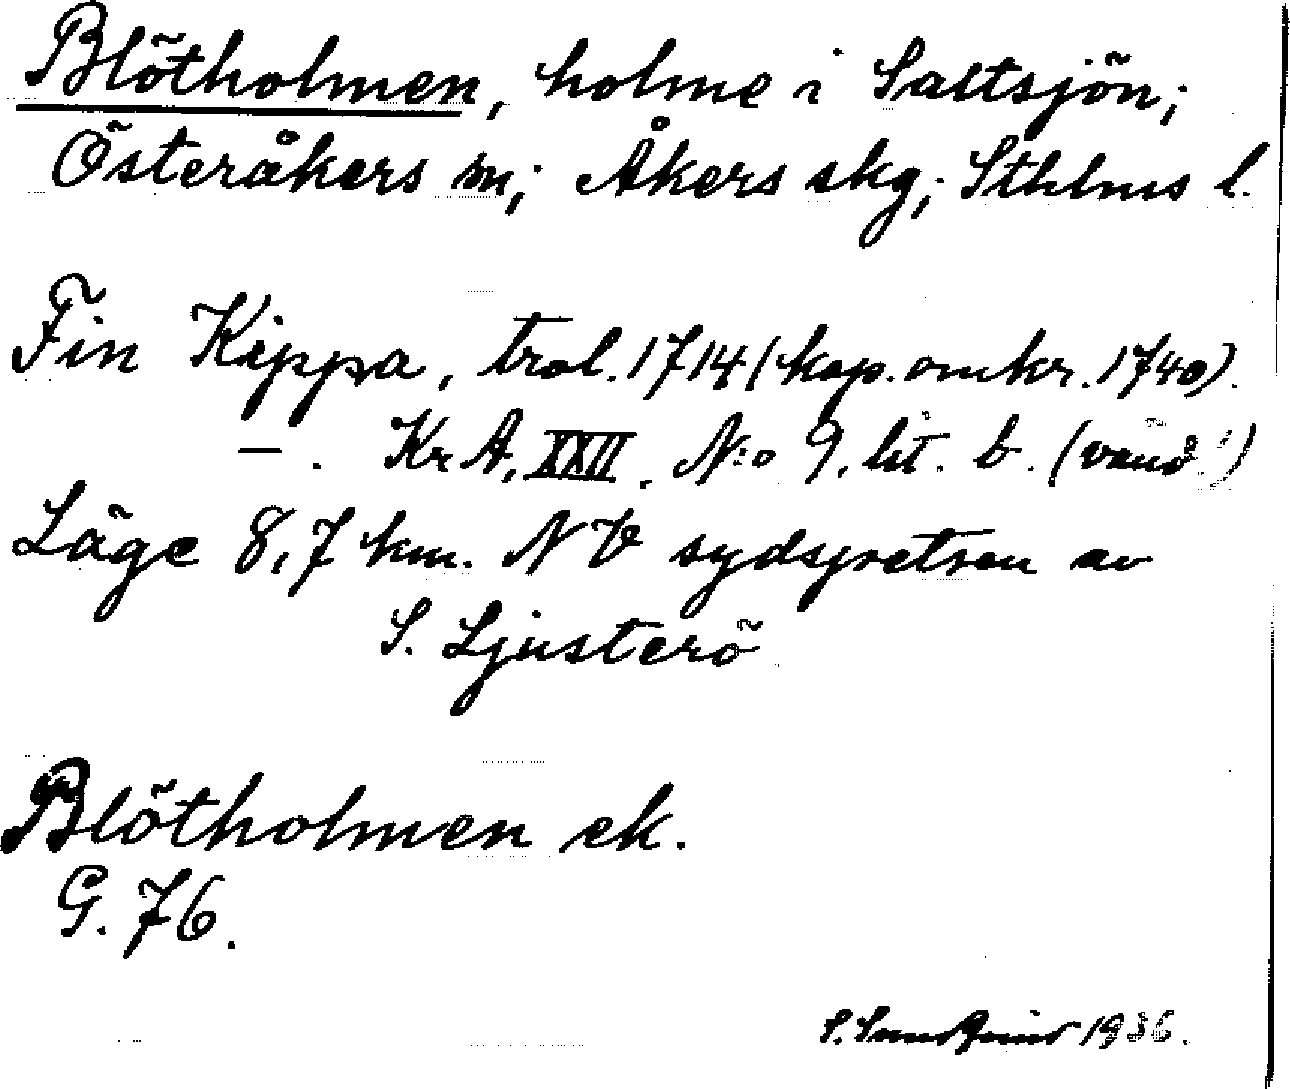 Blötholmen, holme i Saltsjön;
Österåkers sn; Åkers skg; Sthlms l.
Fin Kippa, trol. 1714 (kop. omkr. 1740).
— . Kr A, XXII, N:o 9, lit. b. (vänd!)
Läge 8,7 km. NV sydspetsen av
S. Ljusterö
Blötholmen ek.
G. 76.
S. 1936.